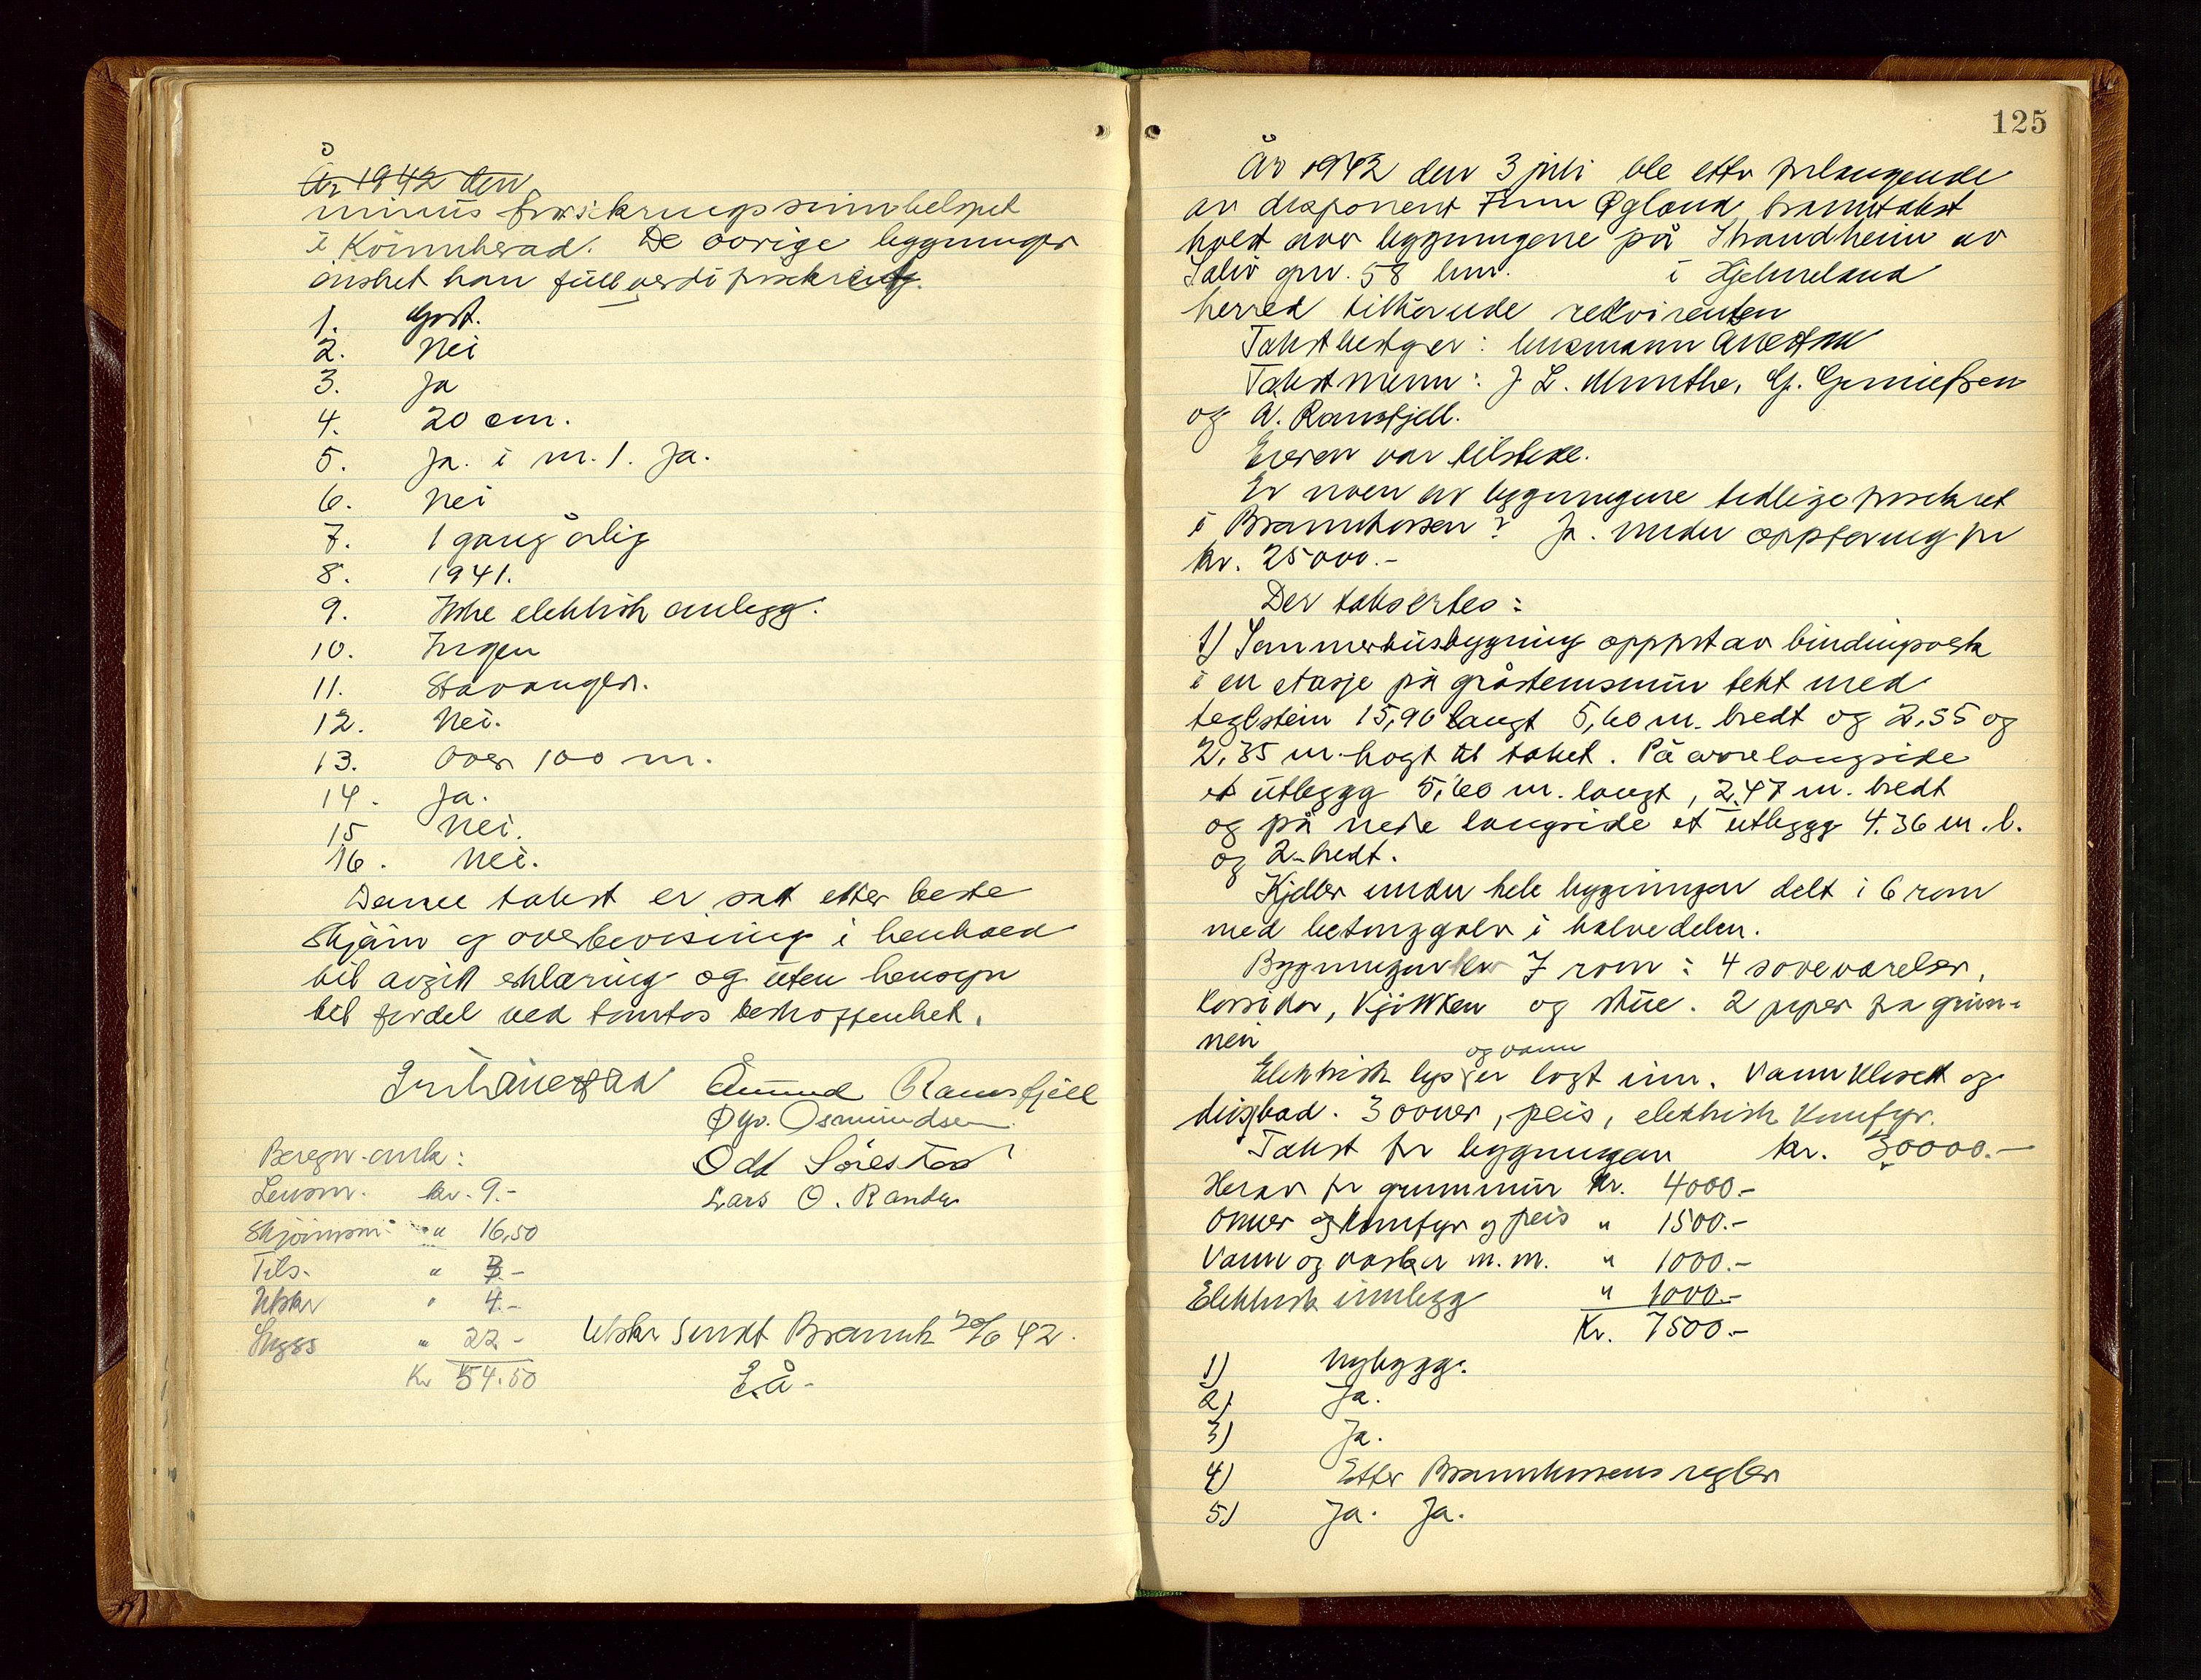 År 1942 den
minus forsikringssumbeløpet
i Kvinnherad. De øvrige bygninger
ønsket han full verdi forsikring.
1. Godt.
2. Nei
3. Ja
4. 20 cm.
5. Ja. i nr. 1. Ja.
6. Nei
7. 1 gang årlig
8. 1941.
9. Ikke elektrisk anlegg.
10. Ingen
11. Stavanger.
12. Nei.
13. Over 100 m.
14. Ja.
15 Nei.
16. Nei.
Denne takst er satt etter beste
skjønn og overbevisning i henhold
til avgitt erklæring og uten hensyn
til fordel ved tomtas beskaffenhet.
Åmund Ramsfjell
Gyv. Osmundsen
Odd Sørestad
Lars O. Randa
Beregn. ank:
Lensm. kr. 9.-
Skjønnsm. " 16,50
Tils. " 3.-
Utskr " 4.-
Skyss " 22.-
Kr 54.50
Utskr sendt Brannk 20/6 42.
E.Å.
125
År 1942 den 3 juli ble etter forlangende
av disponent Finn Øgland branntakst
holdt over bygningene på Strandheim av
gnr. 58 bnr. i Hjelmeland
herred tilhørende rekvirenten
Takstbestyrer: lensmann Anestad
Takstmenn: J. L. Munthe, G.
og A. Ramsfjell.
Eieren var tilstede.
Er noen av bygningene tidligere forsikret
i Brannkassen? Ja. under oppføring for
kr. 25000.-
Der taksertes:
1) Sommerhusbygning oppført av bindingsverk
i en etasje på gråsteinsmur tekt med
teglstein 15,90 langt 5,60 m. bredt og 2,55 og
2,35 m. høgt til taket. På øvre langside
et utbygg 5,60 m. langt, 2,47 m. bredt
og på nedre langside et utbygg 4.36 m. l.
og 2 - bredt.
Kjeller under hele bygningen delt i 6 rom
med betonggolv i halvedelen.
Bygningen har 7 rom: 4 soveværelser,
korridor, kjøkken og stue. 2 piper fra grun-
nen
Elektrisk lys og vann er lagt inn. Vannklosett og
dusjbad. 3 ovner, peis, elektrisk komfyr.
Takst for bygningen kr. 30000.-
Herav for grunnmur Kr. 4000.-
Ovner og komfyr og peis " 1500.-
Vann og vasker m.m. " 1000.-
Elektrisk innlegg " 1000.-
Kr. 7500.-
1) Nybygg.
2) Ja.
3) Ja.
4) Etter Brannkassens regler
5) Ja. Ja.